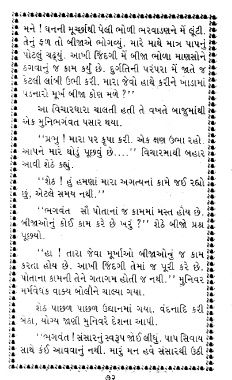 મને ! ધનની મૂર્ચ્છાથી પેલી ભોળી ભરવાડણને મેં લૂંટી.
તેનું ફળ તો બીજાએ ભોગવ્યું. મારે માથે માત્ર પાપનું
પોટલું ચઢ્યું. આખી જિંદગી મેં બીજા ભોળા માણસોને
ઠગવાનું જ કામ કર્યું છે. દુર્ગતિની પરંપરા મેં જાતે જ
કેટલી લાંબી ઉભી કરી. મારા જેવો હાથે કરીને ખાડામાં
પડનારો મૂર્ખ બીજો કોણ મળે ?''
આ વિચારધારા ચાલતી હતી તે વખતે બાજુમાંથી
એક મુનિભગવંત પસાર થયા.
''પ્રભુ ! મારા પર કૃપા કરી. એક ક્ષણ ઉભા રહો.
આપને મારે થોડું પૂછવું છે....'' વિચારમાંથી બહાર
આવી શેઠે કહ્યું.
''શેઠ ! હું હમણાં મારા અગત્યનાં કામે જઈ રહ્યો
છું, એટલે સમય નથી.''
''ભગવંત સૌ પોતાનાં જ કામમાં મસ્ત હોય છે.
બીજાઓનું કોઈ કામ કરે છે ખરૂં ?'' શેઠે બીજો પ્રશ્ન
પૂછ્યો.
''હા ! તારા જેવા મૂર્ખાઓ બીજાઓનું જ કામ
કરતા હોય છે. આખી જિંદગી તેમાં જ પૂરી કરે છે.
પોતાના કામની તેને ગતાગમ હોતી જ નથી.'' મુનિવર
મર્મવેધક વાક્ય બોલીને ચાલ્યા ગયા.
શેઠ પાછળ પાછળ ઉદ્યાનમાં ગયા. વંદનાદિ કરી
બેઠા, યોગ્ય જાણી મુનિવરે દેશના આપી.
''ભગવંત ! સંસારનું સ્વરૂપ જોઈ લીધું. પાપ સિવાય
સાથે કંઈ આવવાનું નથી. મારું મન હવે સંસારથી ઉઠી
૭૨